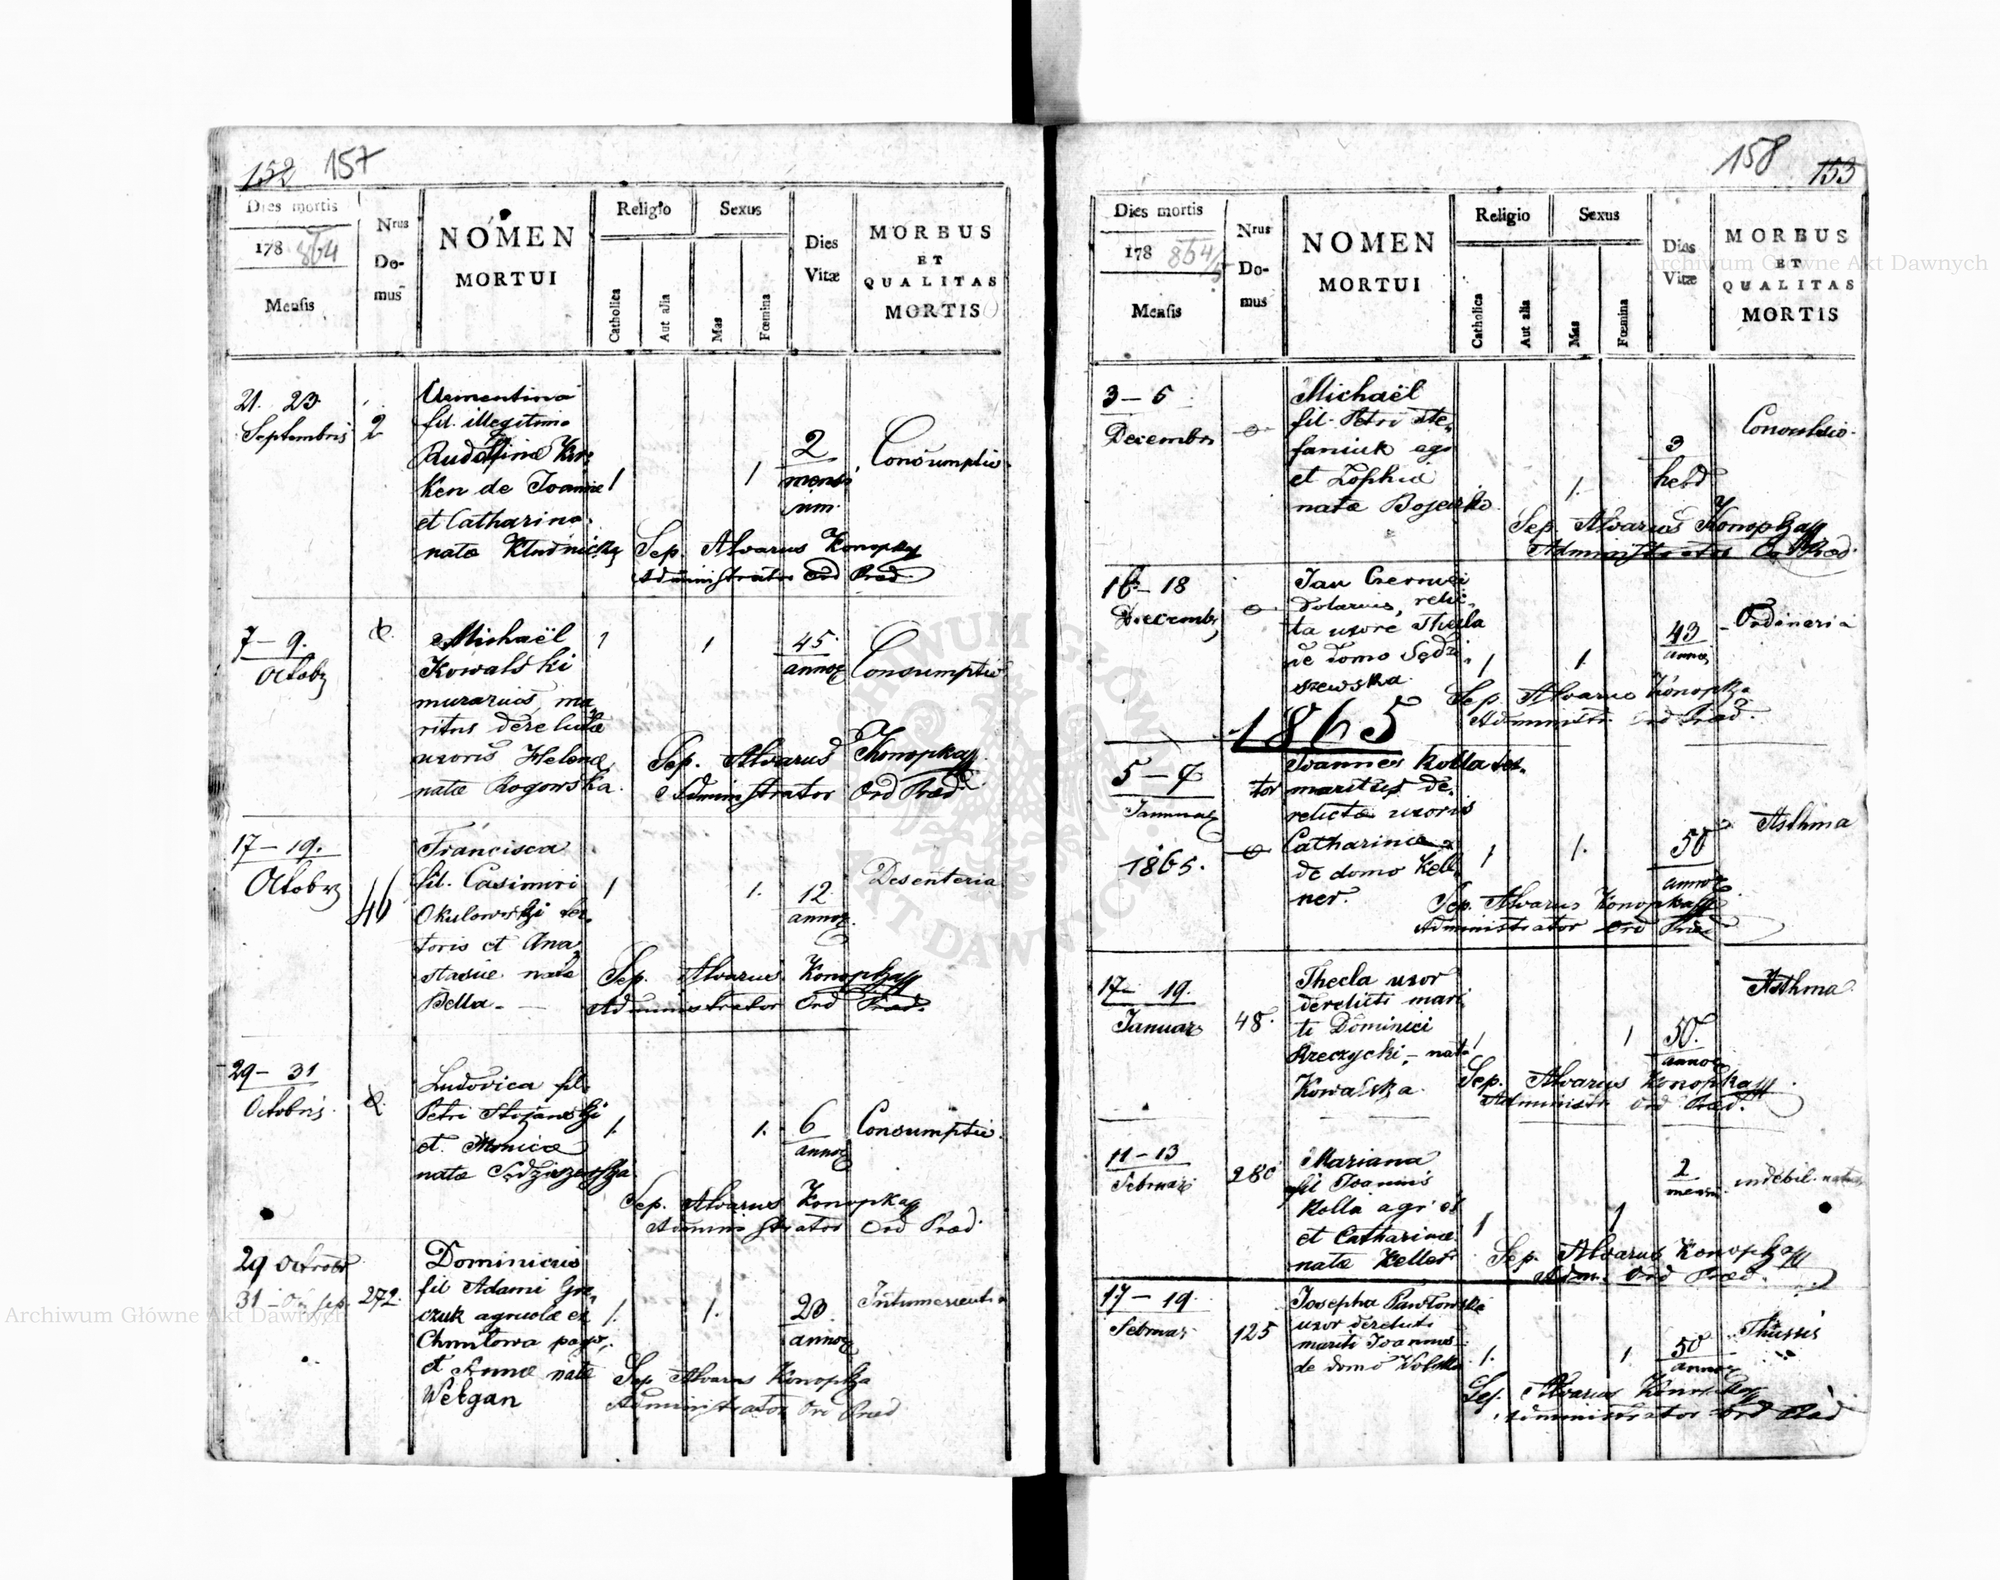 152 157
Dies mortis
178 864
Mensis
Nrus
Do-
mus
NOMEN
MORTUI
Religio
Catholica
Aut alia
Sexus
Mas
Fœmina
Dies
Vitæ
MORBUS
ET
QUALITAS
MORTIS
21. 23
Septembris
2
fil. illegitim.
Rudolfinæ
ken de Joanne
et Catharina
nata Kludnicka
1
1
2
mensi
um.
Consumptio.
Sep. Alvarus Konopka
Administrator Ord Præd.
7 – 9.
Octobr
Michaël
Kowalski
murarius, ma
ritus derelictæ
uxoris Helenæ
natæ Rogowska.
1
1
45
annor
Consumptio
Sep. Alvarus Konopka
Administrator Ord Præd
17 – 19.
Octobr
46
Francisca
fil. Casimiri
Okulowski su-
toris et Ana
stasiæ natæ
Bella.
1
1.
12
annor
Desenteria
Sep. Alvarus Konopka
Administrator Ord Præd.
29 – 31
Octobris.
Ludovica fil.
Petri Stojanowski
et. Monicæ
natæ Sędziszewska
1.
1.
6
annor
Consumptio.
Sep. Alvarus Konopka
Administrator Ord Præd.
29 Octobr
31 – sep.
272.
Dominicus
fil Adami Gre
czuk agricolæ ex
Chmilowa pago,
et Annæ natæ
Welgan
1.
1.
20
annor
Intumescentia
Sep Alvarus Konopka
Administrator Ord Præd
158 153
Dies mortis
178 864/5
Mensis
Nrus
Do-
mus
NOMEN
MORTUI
Religio
Catholica
Aut alia
Sexus
Mas
Fœmina
Dies
Vitæ
MORBUS
ET
QUALITAS
MORTIS
3 – 5
Decembr
Michaël
fil. Petri Ste,
faniuk agr
et Zophiæ
natæ Bojeczko
1.
3
hebd
Convulsio.
Sep. Alvarus Konopka
Administrator Ord Præd.
16 – 18
Decembr
Jan
dolarius, relic,
ta uxore Thecla
de domo Sędzi
szewska.
1
1.
43
annor
Ordineria
Sep. Alvarus Konopka
Administr. Ord Præd.
1865
5 – 7
Januar
1865.
Joannes Kolla su-
tor maritus de,
relictæ uxoris
Catharinæ
de domo Kell-
ner.
1
1.
50
annor
Asthma
Sep. Alvarus Konopka
Administrator Ord Præd
17 – 19.
Januar
48.
Thecla uxor
derelicti mari
ti Dominici
Rzeczycki, – nata
Kowalska.
1
1
50.
annor
Asthma.
Sep. Alvarus Konopka
Administr Ord Præd.
11 – 13
Februar
280
Mariana
fil Joannis
Kolla agr
et Catharinæ
natæ Keller
1
1
2
mens.
indebil. natur
Sep. Alvarus Konopka
Adm. Ord Præd.
17 – 19.
Februar
125
Josepha Pawłowska
uxor derelicti
mariti Joannis
de domo
1.
1
50
annor
Thussis
Sep. Alvarus Konopka
Administrator Ord Præd
Archiwum Główne Akt Dawnych
Archiwum Główne Akt Dawnych
ARCHIWUM GŁÓWNE AKT DAWNYCH